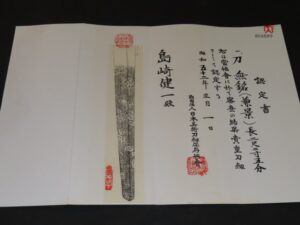 認定書
一、刀 無銘(兼景)長二尺二寸五分
右は當協會に於て審査の結果貴重刀劒
として認定する
昭和五十三年三月一日
財団法人日本美術刀剣保存協會
島崎健一殿